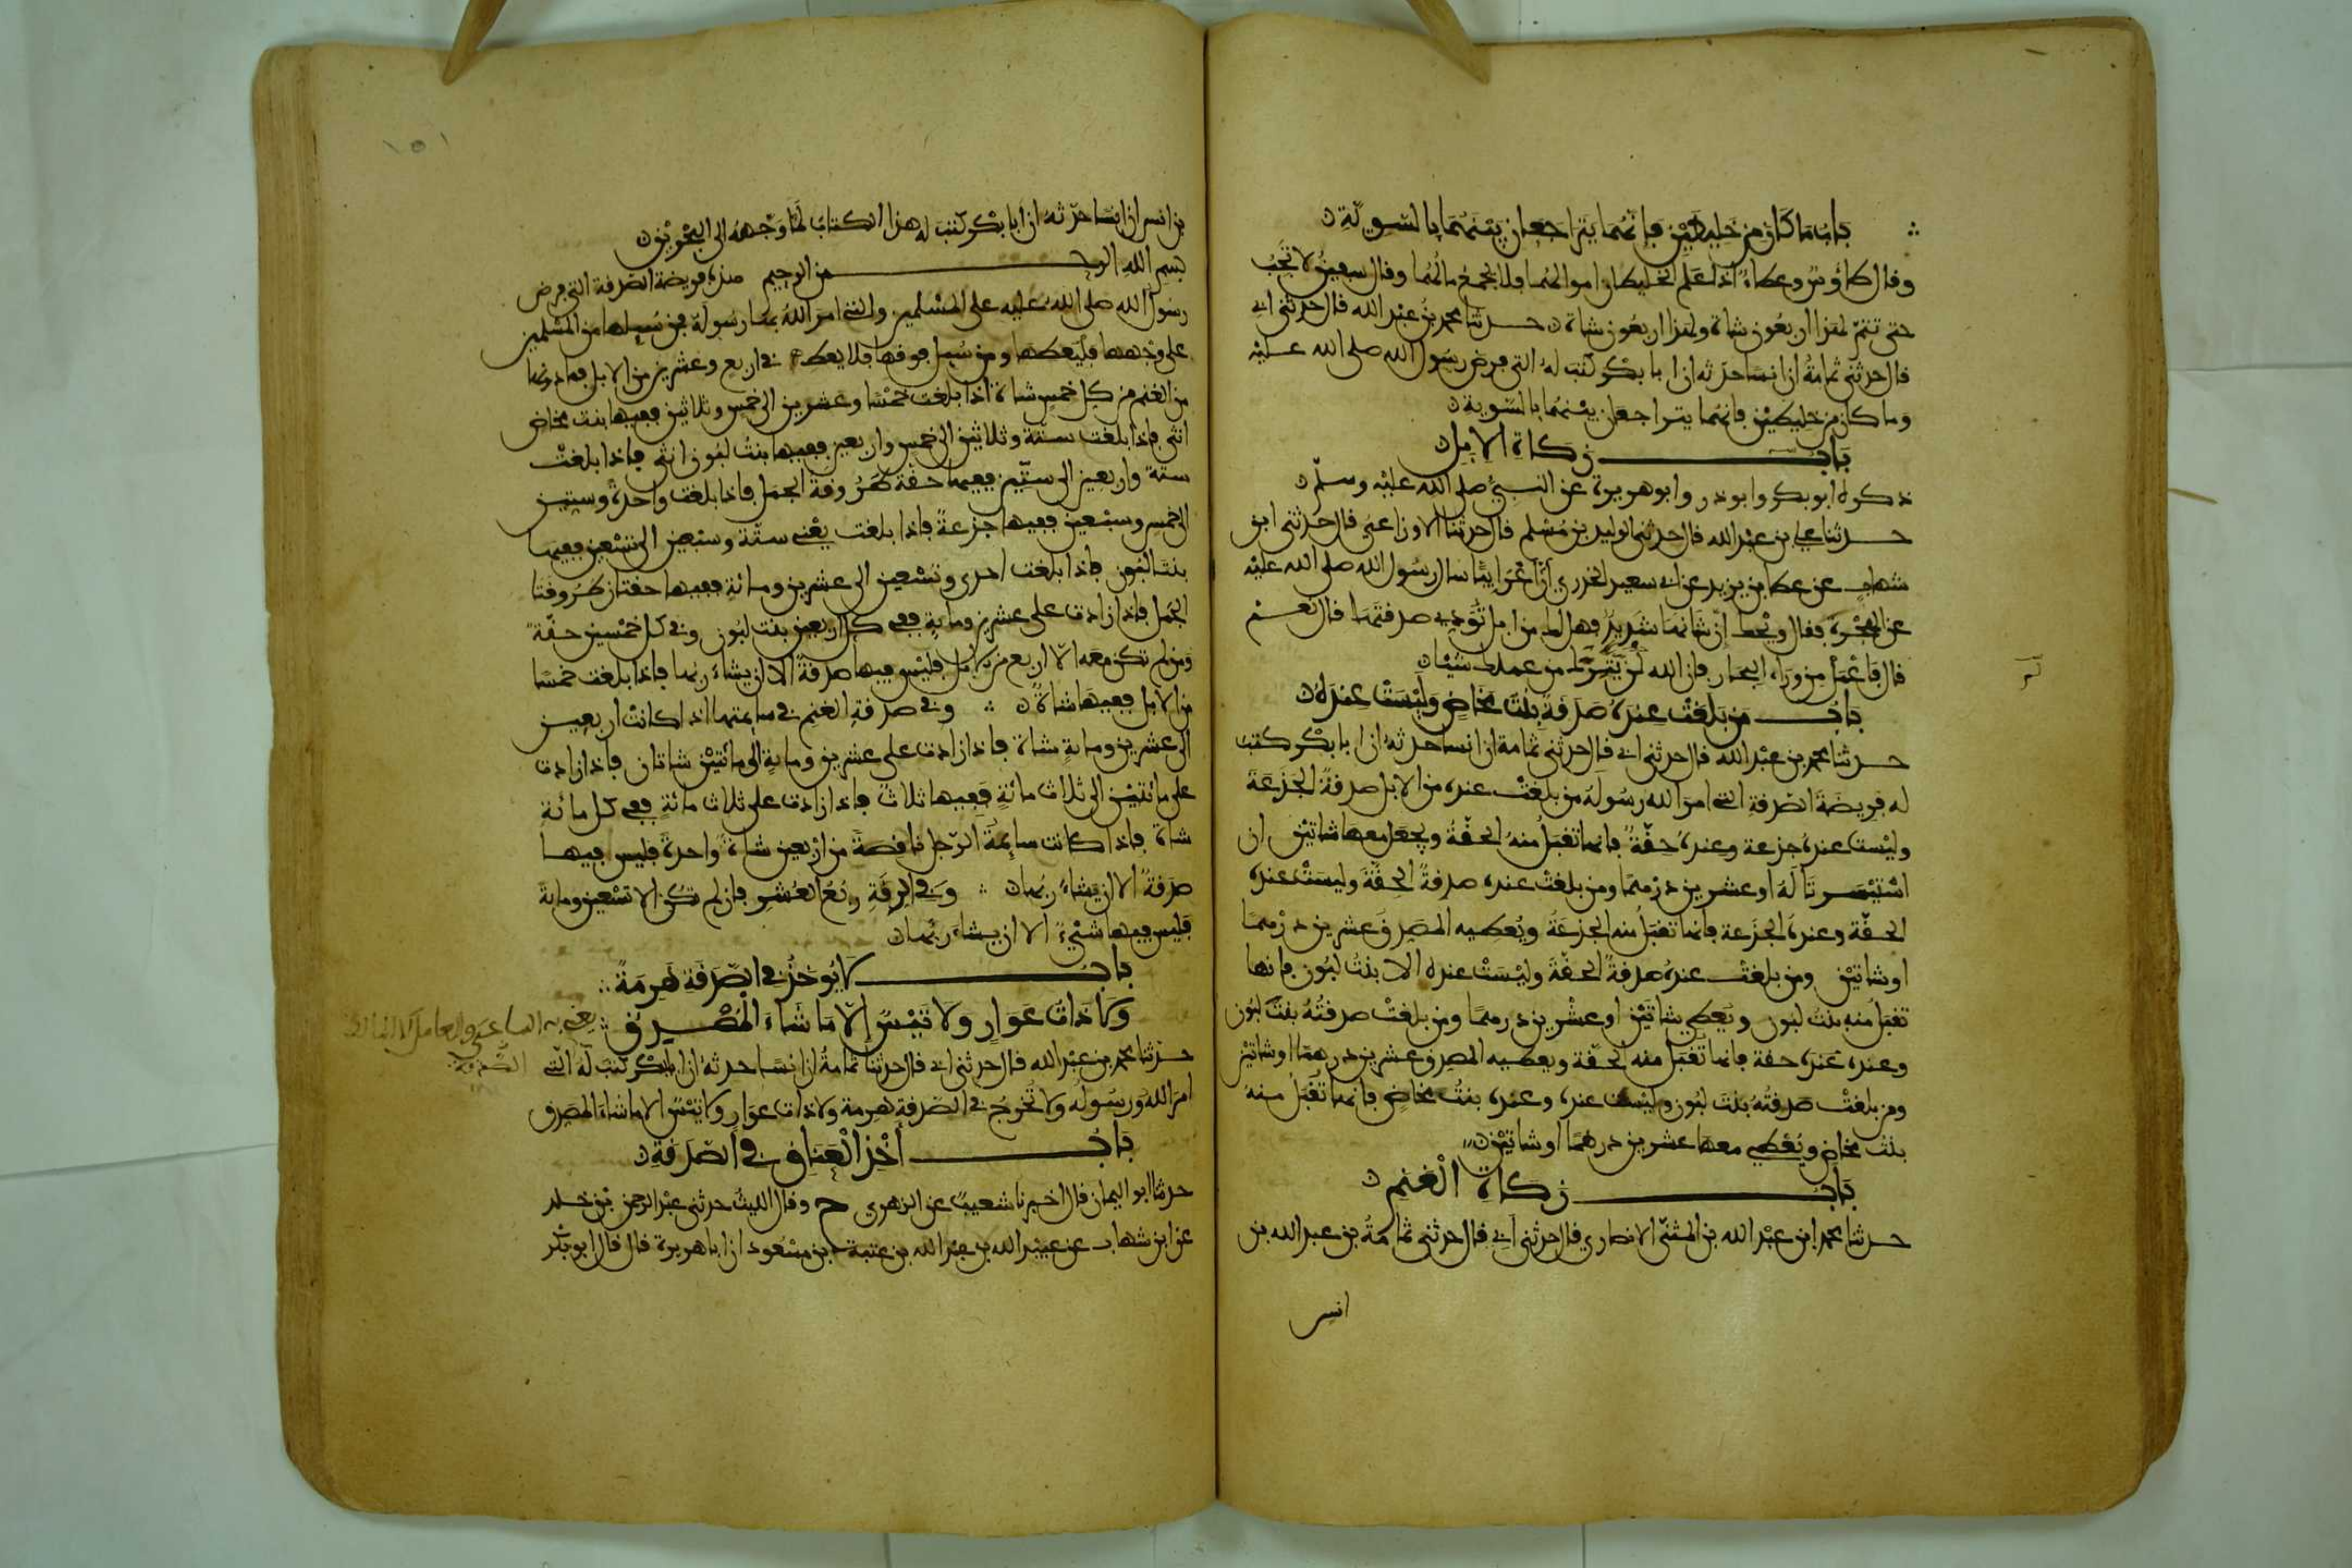 باب ما كان من خليطين فإنهما يتراجعان بينهما بالسوية
وقال طاوس وعطاء اذا علم الخليطان اموالهما فلا يجمع مالهما وقال سفين لا تجب
حتى تتم لهذا اربعون شاة ولهذا اربعون شاة حدثنا محمد بن عبد الله قال حدثني ابي
قال حدثني ثمامة ان انسا حدثه ان ابا بكر كتب له التي فرض رسول الله صلى الله عليه
وما كان من خليطين فإنهما يتراجعان بينهما بالسوية
باب زكاة الابل
ذكره ابو بكر وابو ذر وابو هريرة عن النبي صلى الله عليه وسلم
حدثنا علي بن عبد الله قال حدثنا الوليد بن مسلم قال حدثنا الاوزاعي قال حدثني ابن
شهاب عن عطا بن يزيد عن ابي سعيد الخدري أن أعرابيا سال رسول الله صلى الله عليه
عن الهجرة فقال ويحك إن شانها شديد فهل لك من ابل تؤدي صدقتها قال نعم
قال فاعمل من وراء البحار فإن الله لن يترك من عملك شيئا
باب من بلغت عنده صدقة بنت مخاض وليست عنده
حدثنا محمد بن عبد الله قال حدثني ابي قال حدثني ثمامة ان انسا حدثه ان ابا بكر كتب
له فريضة الصدقة التي امر الله رسوله من بلغت عنده من الابل صدقة الجذعة
وليست عنده جذعة وعنده حقة فإنها تقبل منه الحقة ويجعل معها شاتين ان
استيسرتا له او عشرين درهما ومن بلغت عنده صدقة الحقة وليست عنده
الحقة وعنده الجذعة فإنها تقبل منه الجذعة ويعطيه المصدق عشرين درهما
او شاتين ومن بلغت عنده صدقة الحقة وليست عنده الا بنت لبون فإنها
تقبل منه بنت لبون ويعطي شاتين او عشرين درهما ومن بلغت صدقته بنت لبون
وعنده عنده حقة فإنها تقبل منه الحقة ويعطيه المصدق عشرين درهما او شاتين
ومن بلغت صدقته بنت لبون وليست عنده وعنده بنت مخاض فإنها تقبل منه
بنت مخاض ويعطي معها عشرين درهما او شاتين
باب زكاة الغنم
حدثنا محمد ابن عبد الله بن المثنى الانصاري قال حدثني ابي قال حدثني ثمامة بن عبد الله بن
انس
١٥١
بن انس ان انسا حدثه ان ابا بكر كتب له هذا الكتاب لما وجهه الى البحرين
بسم الله الرحمن الرحيم هذه فريضة الصدقة التي فرض
رسول الله صلى الله عليه على المسلمين والتي امر الله بها رسوله فمن سيلها من المسلمين
على وجهها فليعطها ومن سيل فوقها فلا يعط في اربع وعشرين من الابل فما دونها
من الغنم من كل خمس شاة اذا بلغت خمسا وعشرين الى خمس وثلاثين ففيها بنت مخاض
انثى فإذا بلغت ستة وثلاثين الى خمس واربعين ففيها بنت لبون انثى فإذا بلغت
ستة واربعين الى ستين ففيها حقة طروقة الجمل فإذا بلغت واحدة وستين
الى خمس وسبعين ففيها جذعة فإذا بلغت يعني ستة وسبعين الى تسعين ففيها
بنتا لبون فإذا بلغت احدى وتسعين الى عشرين ومائة ففيها حقتان طروقتا
الجمل فإذا زادت على عشرين ومائة ففي كل اربعين بنت لبون وفي كل خمسين حقة
ومن لم تكن معه الا اربع من الابل فليس فيها صدقة الا ان يشاء ربها فإذا بلغت خمسا
من الابل ففيها شاة وفي صدقة الغنم في سايمتها اذا كانت اربعين
الى عشرين وماية شاة فإذا زادت على عشرين وماية الى مائتين شاتان فإذا زادت
على مائتين الى ثلاث مائة ففيها ثلاث فإذا زادت على ثلاث مائة ففي كل مائة
شاة فإذا كانت سايمة الرجل ناقصة من اربعين شاة واحدة فليس فيها
صدقة الا ان يشاء ربها وفي الرقة ربع العشر فإن لم تكن الا تسعين وماية
فليس فيها شيء الا ان يشاء ربها
باب لا يوخذ في الصدقة هرمة
ولا ذات عوار ولا تيس إلا ما شاء المصدق
يعني به الساعي والعامل
حدثنا محمد بن عبد الله قال حدثني ابي قال حدثنا ثمامة ان انسا حدثه ان ابا بكر كتب له التي
امر الله ورسوله ولا تخرج في الصدقة هرمة ولا ذات عوار ولا تيس الا ما شاء المصدق
باب أخذ العناق في الصدقة
حدثنا ابو اليمان قال اخبرنا شعيب عن الزهري ح وقال الليث حدثني عبد الرحمن بن خلد
عن ابن شهاب عن عبيد الله بن عبد الله بن عتبة بن مسعود ان ابا هريرة قال قال ابو بكر